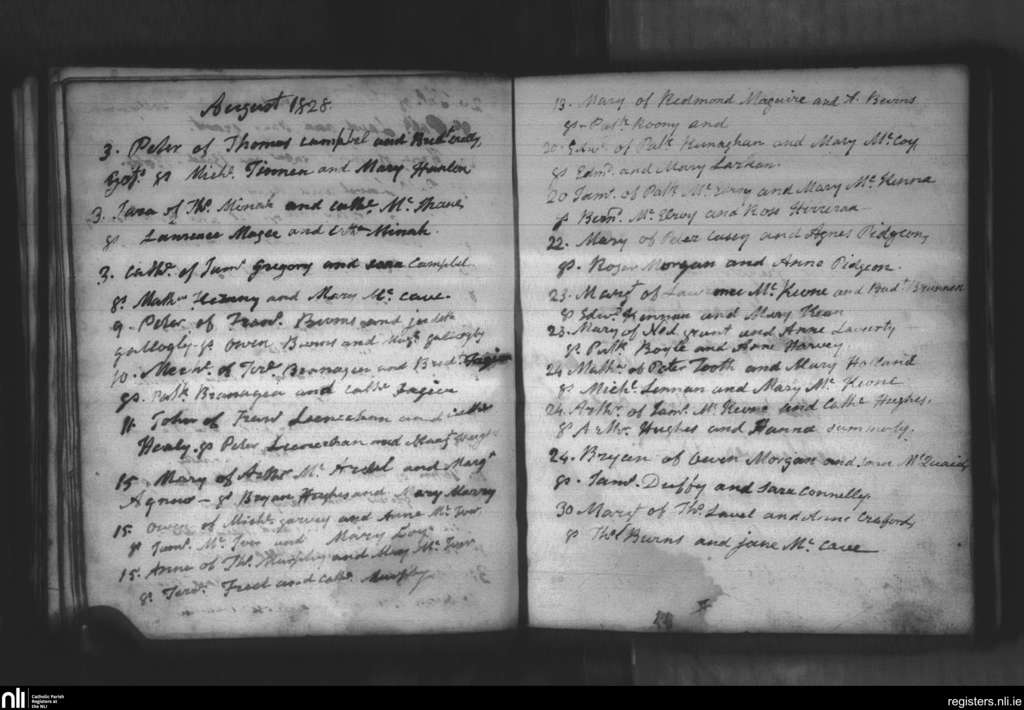 August 1828
3. Peter of Thomas Campbel and Brid.
sp Mich. Tiernen and Mary Hanlen
3. Sara of Tho. Minah and Cathe. Mc
sp. Laurence Magee and Minah.
3. Cathe. of Jam. Gregory and Sara Campbel
sp. Math. and Mary Mc Cave.
9. Peter of Fran. Burns and
gallogly sp Owen Burns and gallogly
10. of Branagen and Brid. Fagien
sp. Patk. Branagen and Cathe Fagien
11. John of Fran. Leenechan and Cathe
Healy. sp Peter Leenechan and
15. Mary of Arthr Mc and Margt
Agnew - sp Bryan Hughes and Mary
15. Owen of Mich. garvey and Anne Mc
sp Jam. Mc and Mary
15. Anne of Tho. Murphy and Mary Mc
sp. and Cathe. Murphy
13. Mary of Redmond Maguire and A. Burns
sp - Patk. Roony and
20. Edwd. of Patk Hunaghan and Mary McCoy
sp Edmd. and Mary Larken.
20 Jam. of Patk. Mc Elroy and Mary Mc Kenna
sp Bern. Mc Elroy and Ross
22. Mary of Peter Casey and Agnes Pidgeon,
sp. Roger Morgan and Anne Pidgeon.
23. Margt of Lawrence Mc Keone and Bridt Brannan
sp Edwd. Kennan and Mary Kean
23. Mary of Ned grant and Anne Laverty
sp Patk Boyle and Anne Harvey.
24 Math. of Peter Tooth and Mary Holland
sp Michl. Lennan and Mary Mc Keone
24. Arthr. of Jam. Mc Keone and Cathe Hughes.
sp Arthr. Hughes and Hanna Summerly.
24. Bryan of Owen Morgan and Mc Quaid
sp. Jam. Duffy and Sara Connelly.
30 Margt of Tho. Lavel and Anne Craford,
sp Thos Burns and Jane Mc Cave
nli
Catholic Parish
Registers at
the NLI
registers.nli.ie